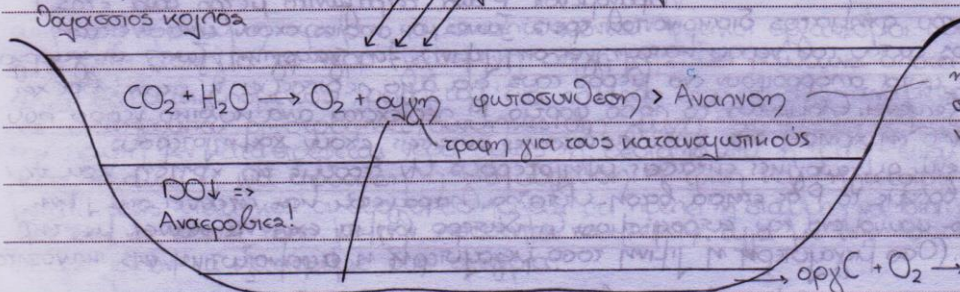 θαλασσιος κολπος
CO₂ + H₂O → O₂ + αλγη φωτοσυνθεση > Αναπνοη
τροφη για τους καταναλωτικούς
DO↓ =>
Αναεροβιες!
οργC + O₂ →